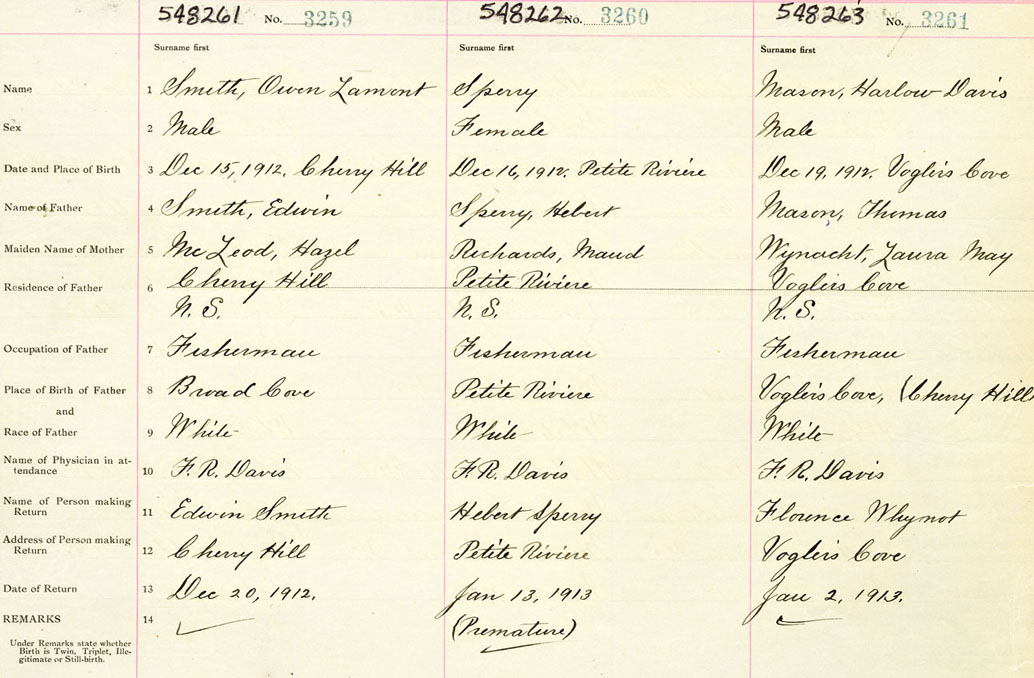 548261 No. 3259 548262 No. 3260 548263 No. 3261
Surname first Surname first Surname first
Name 1 Smith, Owen Lamont Sperry Mason, Harlow Davis
Sex 2 Male Female Male
Date and Place of Birth 3 Dec 15, 1912. Cherry Hill Dec 16, 1912. Petite Riviere Dec 19, 1912. Voglers Cove
Name of Father 4 Smith, Edwin Sperry, Hebert Mason, Thomas
Maiden Name of Mother 5 McLeod, Hazel Richards, Maud Wynacht, Laura May
Residence of Father 6 Cherry Hill Petite Riviere Voglers Cove
N. S. N. S. N. S.
Occupation of Father 7 Fisherman Fisherman Fisherman
Place of Birth of Father 8 Broad Cove Petite Riviere Voglers Cove, (Cherry Hill
and
Race of Father 9 White White White
Name of Physician in at-
tendance 10 F. R. Davis F. R. Davis F. R. Davis
Name of Person making
Return 11 Edwin Smith Hebert Sperry Florence Whynot
Address of Person making
Return 12 Cherry Hill Petite Riviere Voglers Cove
Date of Return 13 Dec 20, 1912. Jan 13, 1913 Jan 2, 1913.
REMARKS 14 (Premature)
Under Remarks state whether
Birth is Twin, Triplet, Ille-
gitimate or Still-birth.